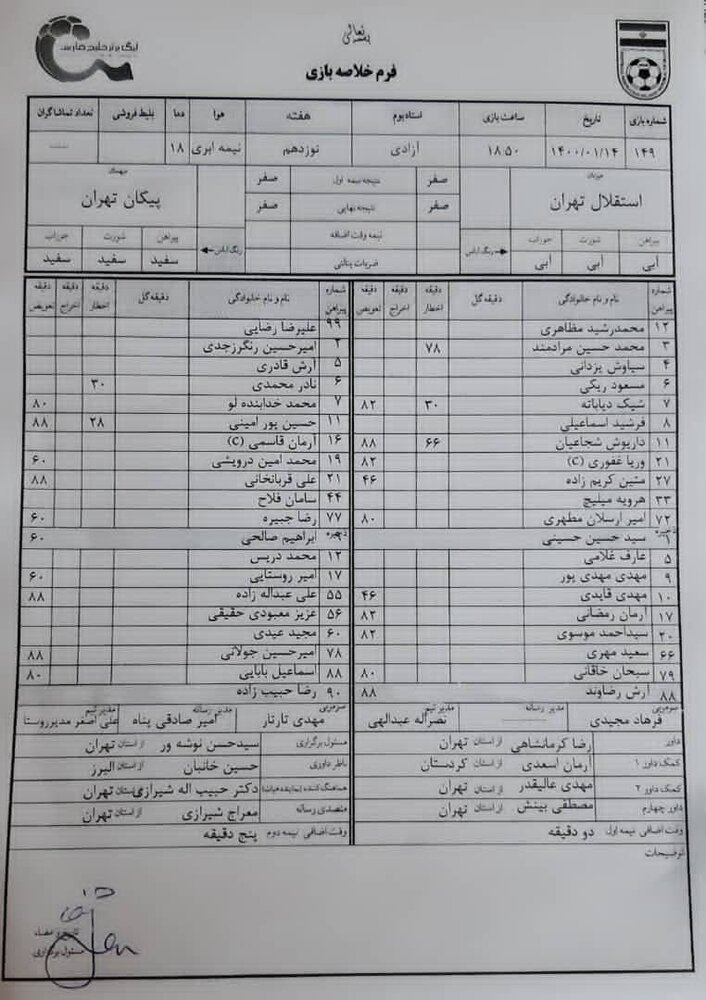 بسمه تعالی
لیگ برتر خلیج فارس
فرم خلاصه بازی
شماره بازی تاریخ ساعت بازی استادیوم هفته هوا دما بلیط فروشی تعداد تماشاگران
۱۴۹ ۱۴۰۰/۰۱/۱۴ ۱۸:۵۰ آزادی نوزدهم نیمه ابری ۱۸
میزبان صفر نتیجه نیمه اول صفر میهمان
استقلال تهران صفر نتیجه نهایی صفر پیکان تهران
نیمه وقت اضافه
پیراهن شورت جوراب رنگ لباس ضربات پنالتی رنگ لباس پیراهن شورت جوراب
آبی آبی آبی سفید سفید سفید
شماره پیراهن نام و نام خانوادگی دقیقه گل دقیقه اخطار دقیقه اخراج دقیقه تعویض شماره پیراهن نام و نام خانوادگی دقیقه گل دقیقه اخطار دقیقه اخراج دقیقه تعویض
۱۲ محمدرشید مظاهری ۹۹ علیرضا رضایی
۳ محمد حسین مرادمند ۷۸ ۲ امیرحسین رنگرزجدی
۴ سیاوش یزدانی ۵ آرش قادری
۶ مسعود ریگی ۶ نادر محمدی ۳۰
۷ شیک دیاباته ۳۰ ۸۲ ۷ محمد خدابنده لو ۸۰
۸ فرشید اسماعیلی ۱۱ حسین پور امینی ۲۸ ۸۸
۱۱ داریوش شجاعیان ۶۶ ۸۸ ۱۶ آرمان قاسمی (C)
۲۱ وریا غفوری (C) ۸۲ ۱۹ محمد امین درویشی ۶۰
۲۷ متین کریم زاده ۴۶ ۲۱ علی قربانخانی ۸۸
۳۳ هرویه میلیچ ۴۴ سامان فلاح
۷۲ امیر ارسلان مطهری ۸۰ ۷۷ رضا جبیره ۶۰
ذخیره ۱ سید حسین حسینی ذخیره ابراهیم صالحی ۶۰
۵ عارف غلامی ۱۲ محمد دریس
۹ مهدی مهدی پور ۱۷ امیر روستایی ۶۰
۱۰ مهدی قایدی ۴۶ ۵۵ علی عبداله زاده ۸۸
۱۷ آرمان رمضانی ۸۲ ۵۶ عزیز معبودی حقیقی
۲۰ سیداحمد موسوی ۸۲ ۶۰ مجید عیدی
۶۶ سعید مهری ۷۸ امیرحسین جولانی ۸۸
۷۹ سبحان خاقانی ۸۰ ۸۸ اسماعیل بابایی ۸۰
۸۸ آرش رضاوند ۸۸ ۹۰ رضا حبیب زاده
سرمربی فرهاد مجیدی مدیر رسانه مدیر تیم نصراله عبدالهی سرمربی مهدی تارتار مدیر رسانه امیر صادقی پناه مدیر تیم علی اصغر مدیرروستا
داور رضا کرمانشاهی از استان تهران مسئول برگزاری سیدحسن نوشه ور از استان تهران
کمک داور ۱ آرمان اسعدی از استان کردستان ناظر داوری حسین خانبان از استان البرز
کمک داور ۲ مهدی عالیقدر از استان تهران هماهنگ کننده (نماینده هیات) دکتر حبیب اله شیرازی از استان تهران
داور چهارم مصطفی بینش از استان تهران متصدی رسانه معراج شیرازی از استان تهران
وقت اضافی نیمه اول دو دقیقه وقت اضافی نیمه دوم پنج دقیقه
توضیحات
مسئول برگزاری